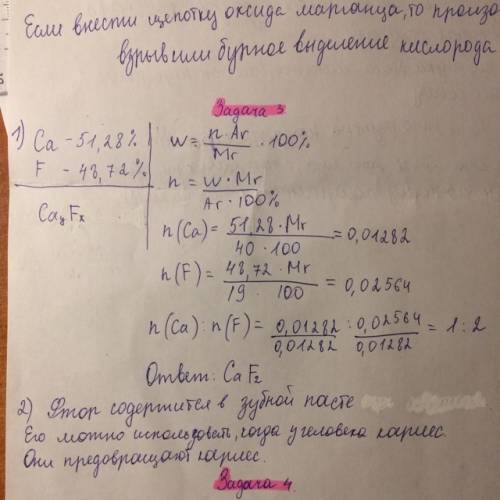 Если внести щепотку оксида марганца, то произо
взрыв или бурное выделение кислорода
Задача 3
1) Ca - 51,28%
F - 48,72%
CayFx
w = n·Ar / Mr · 100%
n = w·Mr / Ar·100%
n(Ca) = 51,28·Mr / 40·100 = 0,01282
n(F) = 48,72·Mr / 19·100 = 0,02564
n(Ca) : n(F) = 0,01282 / 0,01282 : 0,02564 / 0,01282 = 1:2
Ответ: CaF2
2) Фтор содержится в зубной пасте
Его можно использовать, когда у человека кариес.
Они предовращают кариес.
Задача 4.